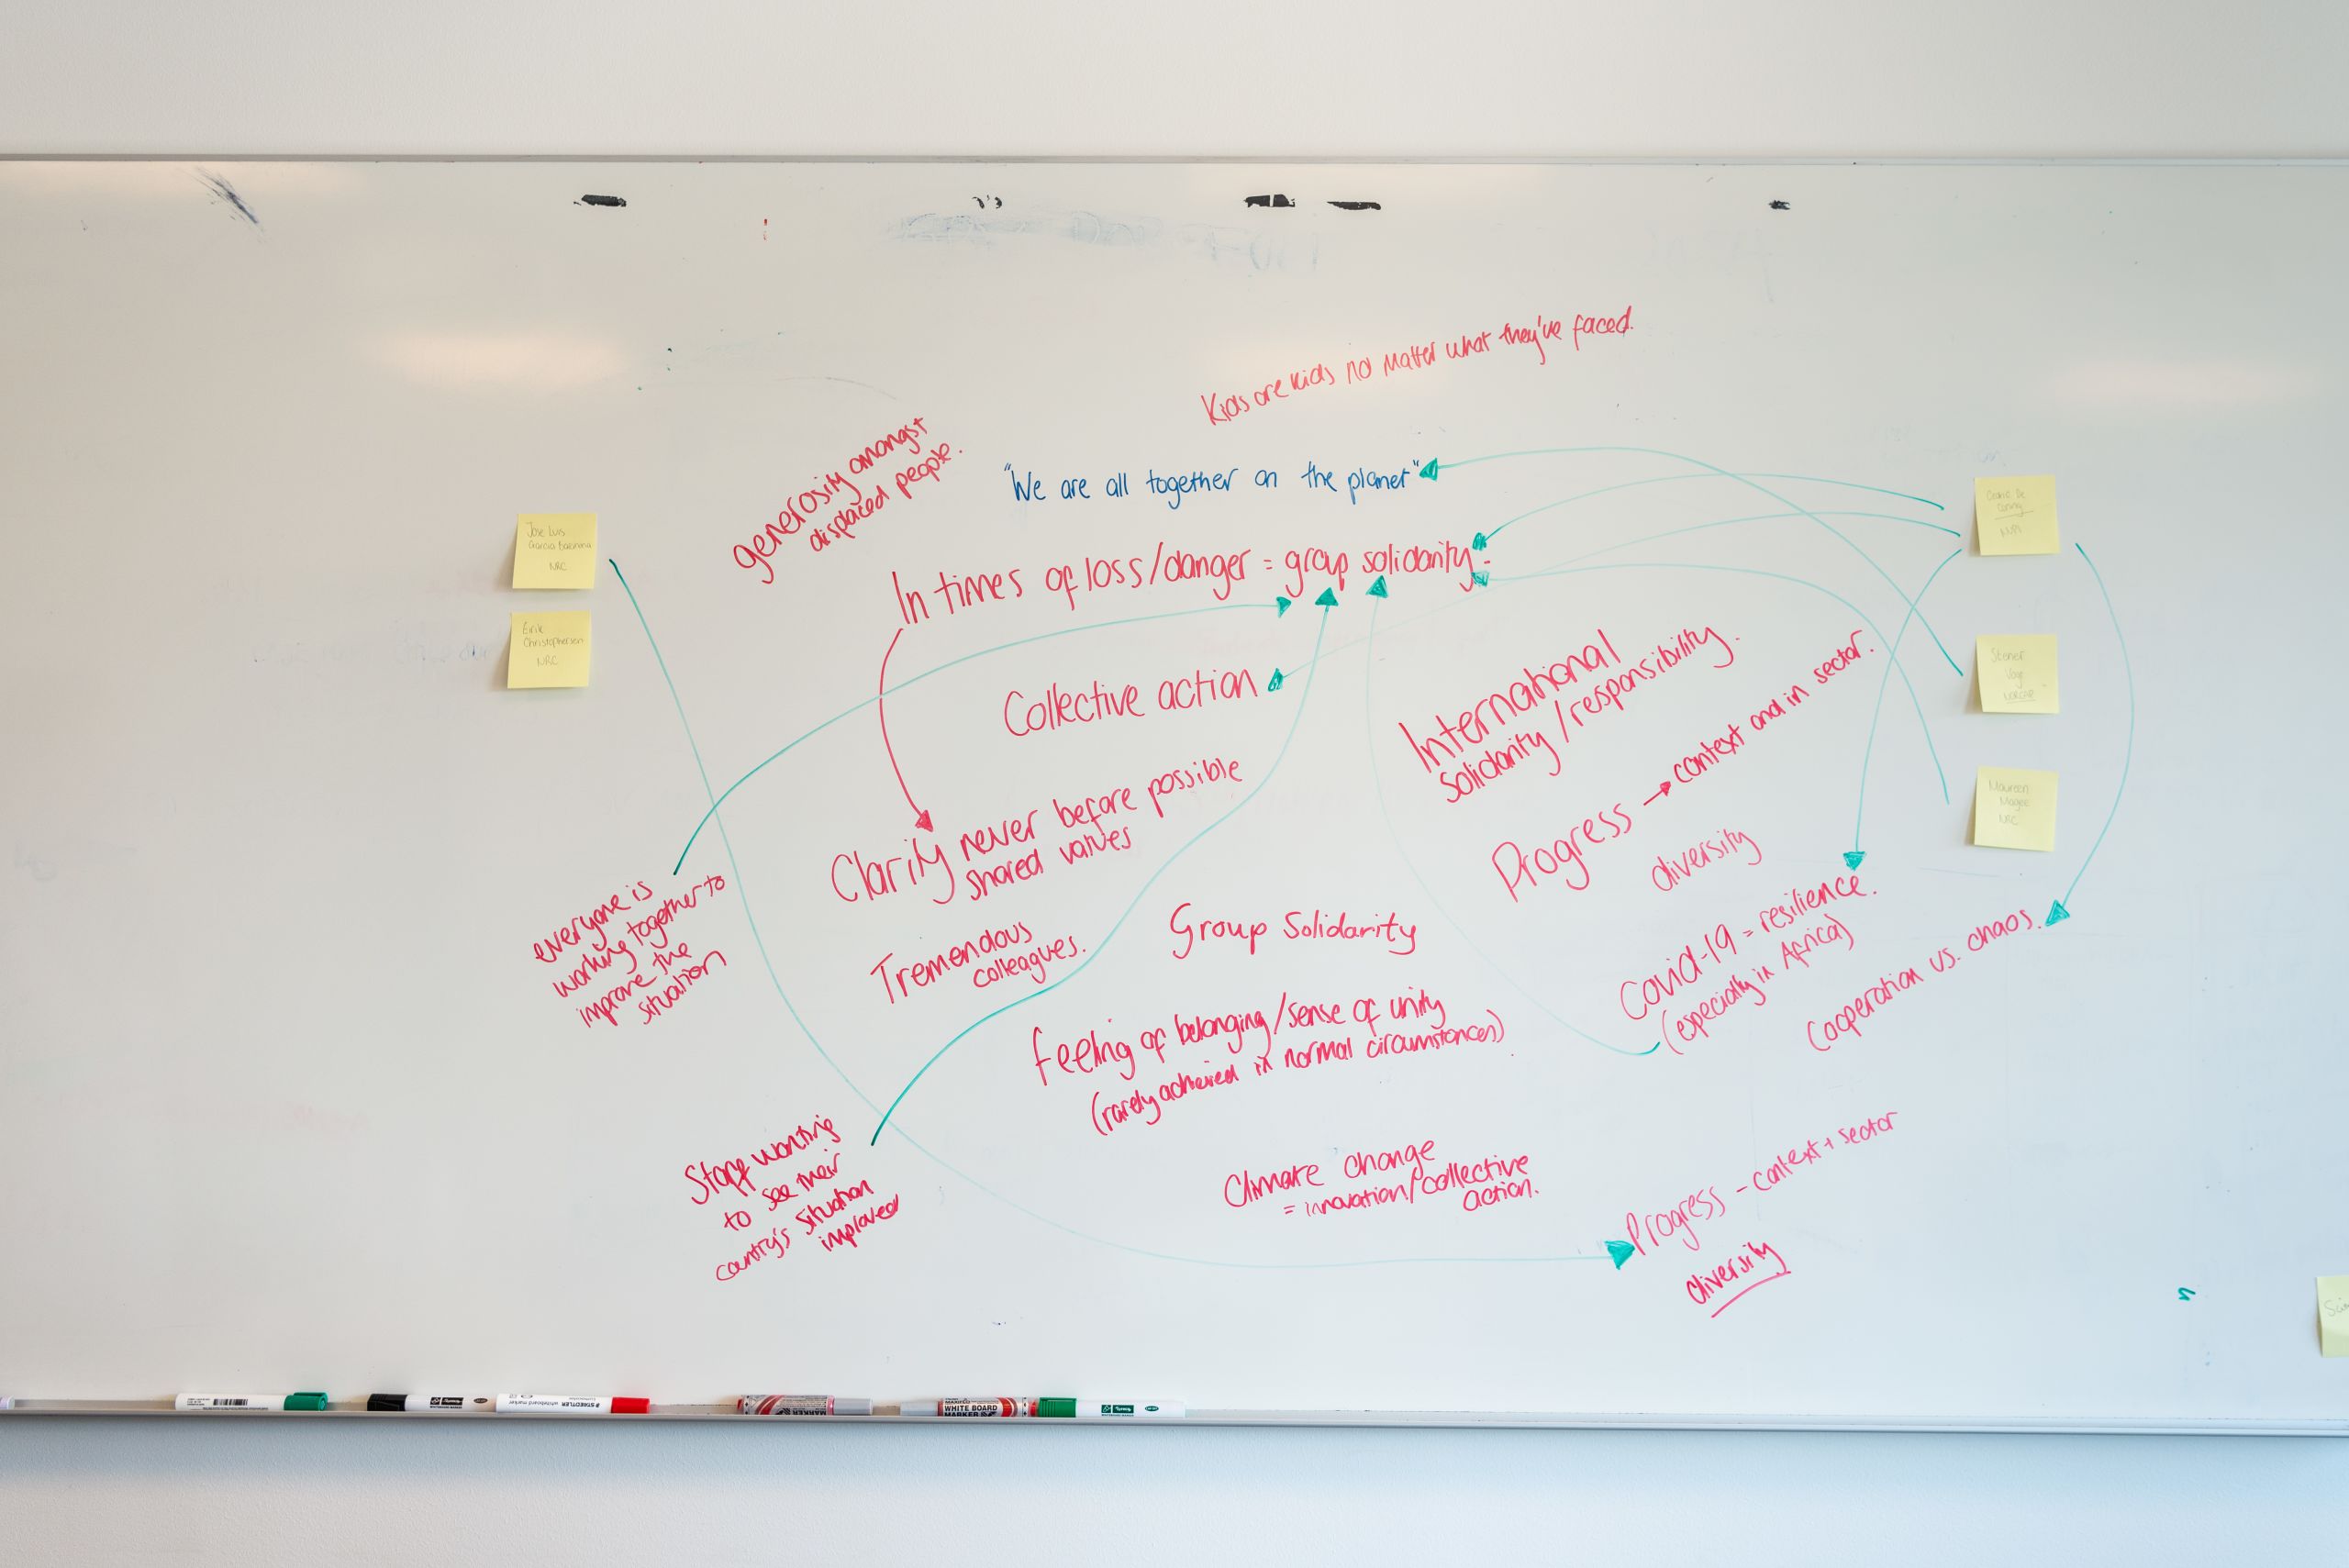 Kids are kids no matter what they've faced.
generosity amongst
displaced people.
"We are all together on the planet"
In times of loss/danger = group solidarity.
Collective action
Clarity never before possible
shared values
Tremendous
colleagues.
Group Solidarity
feeling of belonging/sense of unity
(rarely achieved in normal circumstances)
Climate change
= innovation/collective
action.
everyone is
working together to
improve the
situation
Staff wanting
to see their
country's situation
improved
International
solidarity/responsibility.
Progress → context and in sector.
diversity
Covid-19 = resilience.
(especially in Africa)
Cooperation vs. chaos.
Progress - context + sector
diversity
Jose Luis
Garcia
NRC
Erik
Christophersen
NRC
Maureen
Magee
NRC
NORCAP
WHITE BOARD
MARKER
STAEDTLER whiteboard marker